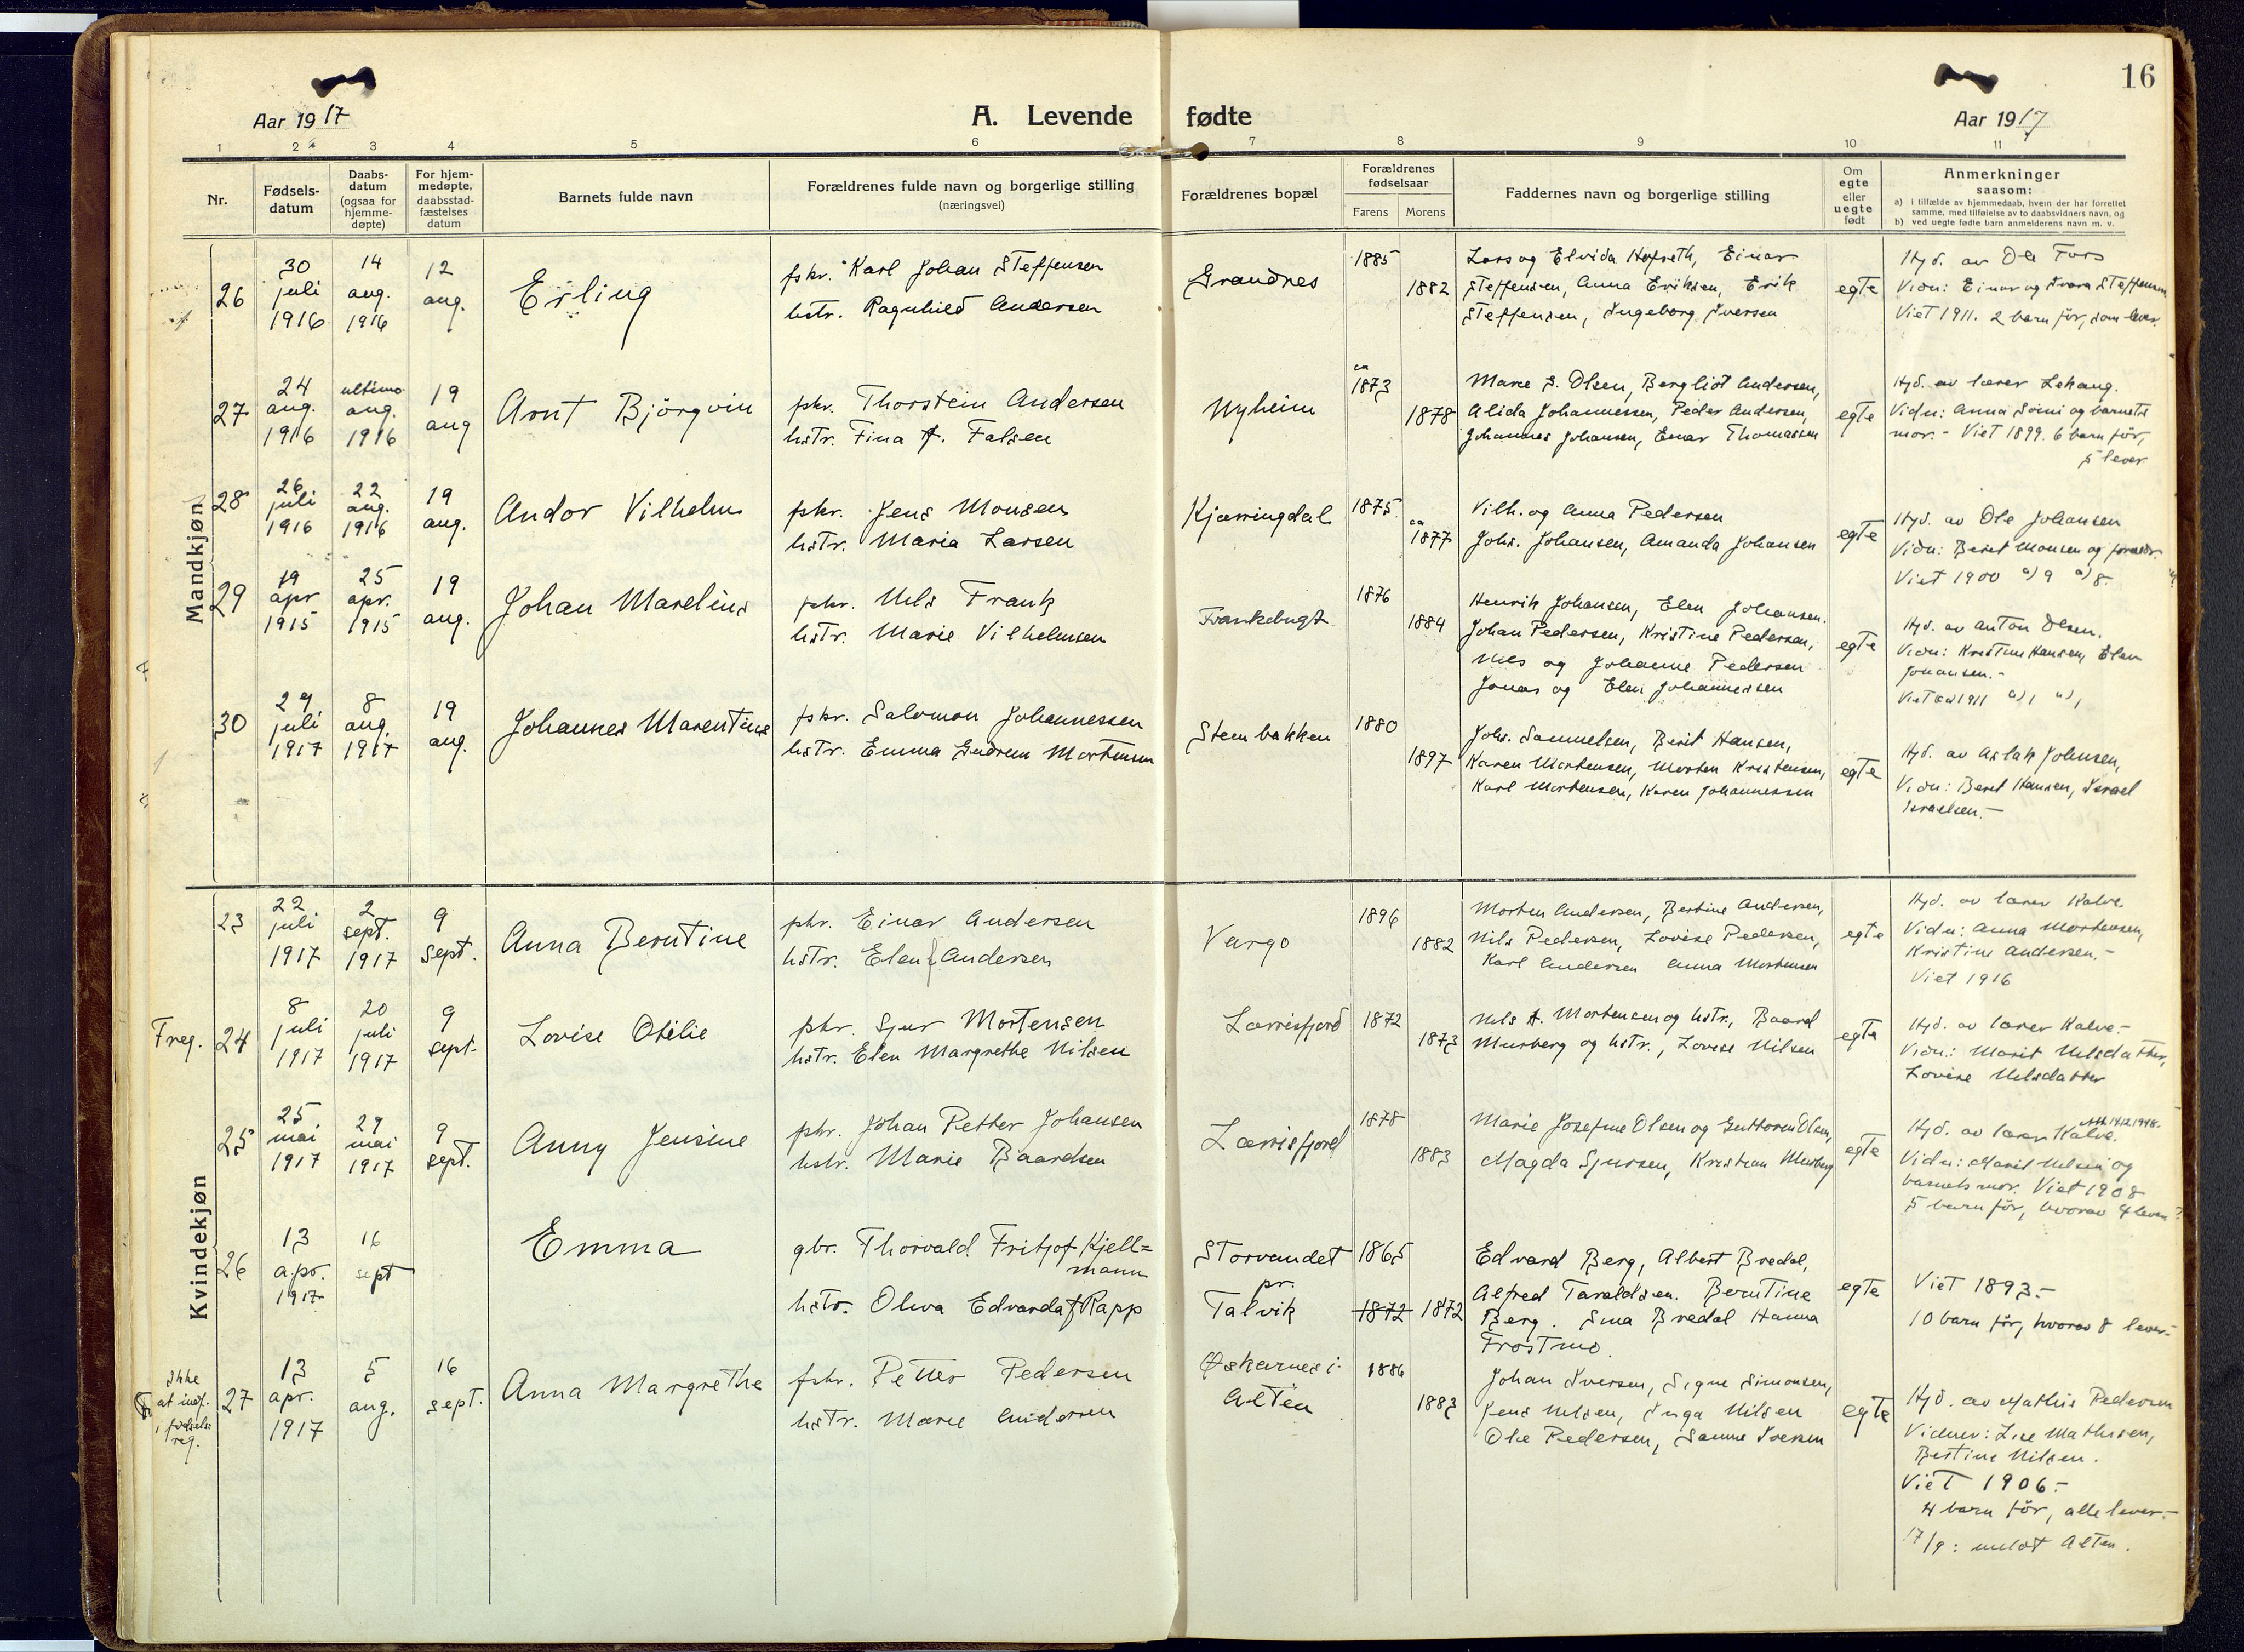 16
Aar 1917
A. Levende fødte
Aar 1917
1 2 3 4 5 6 7 8 9 10 11
Nr.
Fødsels-
datum
Daabs-
datum
(ogsaa for
hjemme-
døpte)
For hjem-
medøpte,
daabsstad-
fæstelses
datum
Barnets fulde navn
Forældrenes fulde navn og borgerlige stilling
(næringsvei)
Forældrenes bopæl
Forældrenes
fødselsaar
Farens Morens
Faddernes navn og borgerlige stilling
Om
egte
eller
uegte
født
Anmerkninger
saasom:
a) i tilfælde av hjemmedaab, hvem der har forrettet
samme, med tilføielse av to daabsvidners navn, og
b) ved uegte fødte barn anmelderens navn m. v.
Mandkjøn.
26
30
juli
1916
14
aug.
1916
12
aug.
Erling
fskr. Karl Johan Steffensen
hstr. Ragnhild Andersen
Grandnes
1885
1882
Lars og Elvida Hofseth, Einar
Steffensen, Anna Eriksen, Erik
Steffensen, Ingeborg Iversen
egte
Hjd. av Ole Fors
Vidn: Einar og Steffensen
Viet 1911. 2 barn för, som lever.
27
24
aug.
1916
ultimo
aug.
1916
19
aug
Arnt Björgvin
fskr. Thorstein Andersen
hstr. Fina A. Falsen
Nyheim
ca
1873
1878
Marie S. Olsen, Bergliot Andersen,
Alida Johannessen, Peder Andersen,
Johannes Johansen, Einar Thomassen
egte
Hjd. av lærer Lehang.
Vidn: Anna Somi og barnets
mor. - Viet 1899. 6 barn för,
5 lever.
28
26
juli
1916
22
aug.
1916
19
aug.
Andor Vilhelm
fskr. Jens Monsen
hstr. Maria Larsen
Kjærringdal
1875
ca
1877
Vilh. og Anna Pedersen
Johs. Johansen, Amanda Johansen
egte
Hjd. av Ole Johansen
Vidn: Beret Monsen og
Viet 1900 a) 9 a) 8.
29
19
apr
1915
25
apr.
1915
19
aug.
Johan Marelius
fskr. Nils Frank
hstr. Marie Vilhelmsen
Frankebugt
1876
1884
Henrik Johansen, Elen Johansen.
Johan Pedersen, Kristine Pedersen,
Nils og Johanne Pedersen
Jonas og Elen Johannessen
egte
Hjd. av Anton Olsen.
Vidn: Kristine Hansen, Elen
Johansen. -
Viet 1911
30
29
juli
1917
8
aug.
1917
19
aug.
Johannes Marentius
fskr. Salomon Johannessen
hstr. Emma Gudrun Mortensen
Stenbakken
1880
1897
Johs. Samuelsen, Berit Hansen,
Karen Mortensen, Morten Kristensen,
Karl Mortensen, Karen Johannessen
egte
Hjd. av Aslak Johnsen,
Vidn: Beret Hansen, Israel
Israelsen. -
Kvindekjøn
23
22
juli
1917
2
sept.
1917
9
sept.
Anna Berntine
fskr. Einar Andersen
hstr. Elen f Andersen
Vargo
1896
1882
Morten Andersen, Bertine Andersen,
Nils Pedersen, Lovise Pedersen,
Karl Andersen Anna Mortensen
egte
Hjd. av lærer Kalve.
Vidn: Anna Mortensen,
Kristine Andersen. -
Viet 1916
Freg.
24
8
juli
1917
20
juli
1917
9
sept.
Lovise Otilie
fskr. Sjur Mortensen
hstr. Elen Margrethe Nilsen
Lærrisfjord
1872
1873
Nils A. Mortensen og hstr., Baard
Murberg og hstr., Lovise Nilsen
egte
Hjd. av lærer Kalve. -
Vidn.: Marit Nilsdatter,
Lovise Nilsdatter
25
25
mai
1917
29
mai
1917
9
sept.
Anny Jensine
fskr. Johan Petter Johansen
hstr. Marie Baardsen
Lærrisfjord
1878
1883
Marie Josefine Olsen og Guttorm Olsen,
Magda Sjursen, Kristian Murberg
egte
14.12.1948.
Hjd. av lærer Kalve.
Vidn: Marit Nilsen og
barnets mor. Viet 1908
5 barn för, hvorav 4 lever
26
13
apr.
1917
16
sept
Emma
gbr. Thorvald Fritjof Kjell=
mann
hstr. Oliva Edvarda f Rapp
Storvandet
pr.
Talvik
1865
1872 1872
Edvard Berg, Albert Bredal,
Alfred Taraldsen. Berntine
Berg. Sina Bredal Hanna
Frostmo.
egte
Viet 1893. -
10 barn för, hvorav 8 lever. -
Ikke
at indf.
i fødsels
reg.
27
13
apr.
1917
5
aug.
16
sept.
Anna Margrethe
fskr. Petter Pedersen
hstr. Marie Andersen
Øskarnes i
Alten
1886
1883
Johan Iversen, Signe Simonsen,
Jens Nilsen, Inga Nilsen
Ole Pedersen, Sanna Iversen
egte
Hjd. av Mathis Pedersen
Vidner: Lise Mathisen,
Bertine Nilsen.
Viet 1906. -
4 barn för, alle lever. -
17/9: meldt Alten.